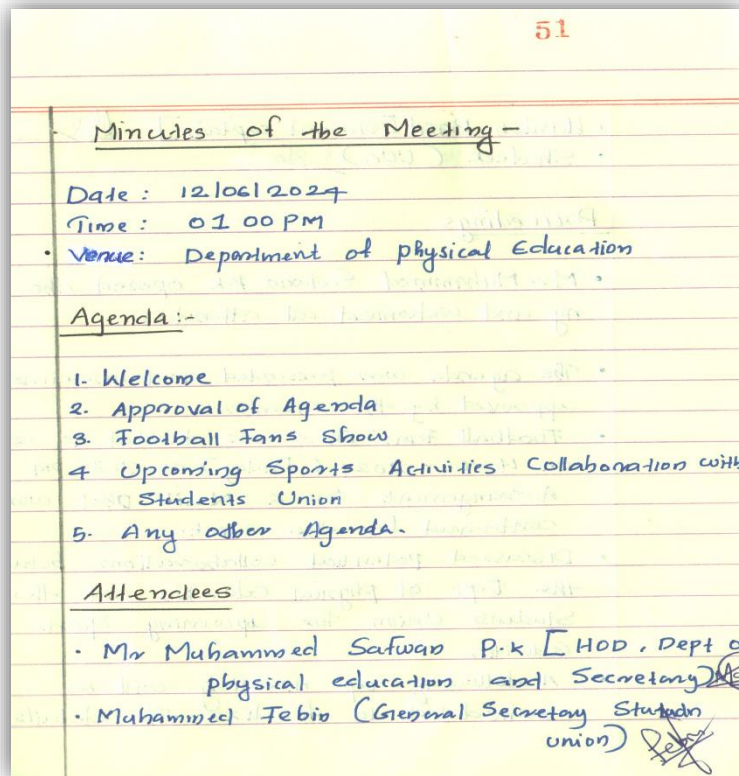 51
Minutes of the Meeting -
Date : 12/06/2024
Time : 01 00 PM
Venue : Department of physical Education
Agenda :-
1. Welcome
2. Approval of Agenda
3. Football Fans Show
4 Upcoming Sports Activities Collaboration with
Students Union
5. Any other Agenda.
Attendees
· Mr Muhammed Safwan P.k [HOD, Dept o
physical education and Secretary)
· Muhammed Jebin (General Secretary
union)